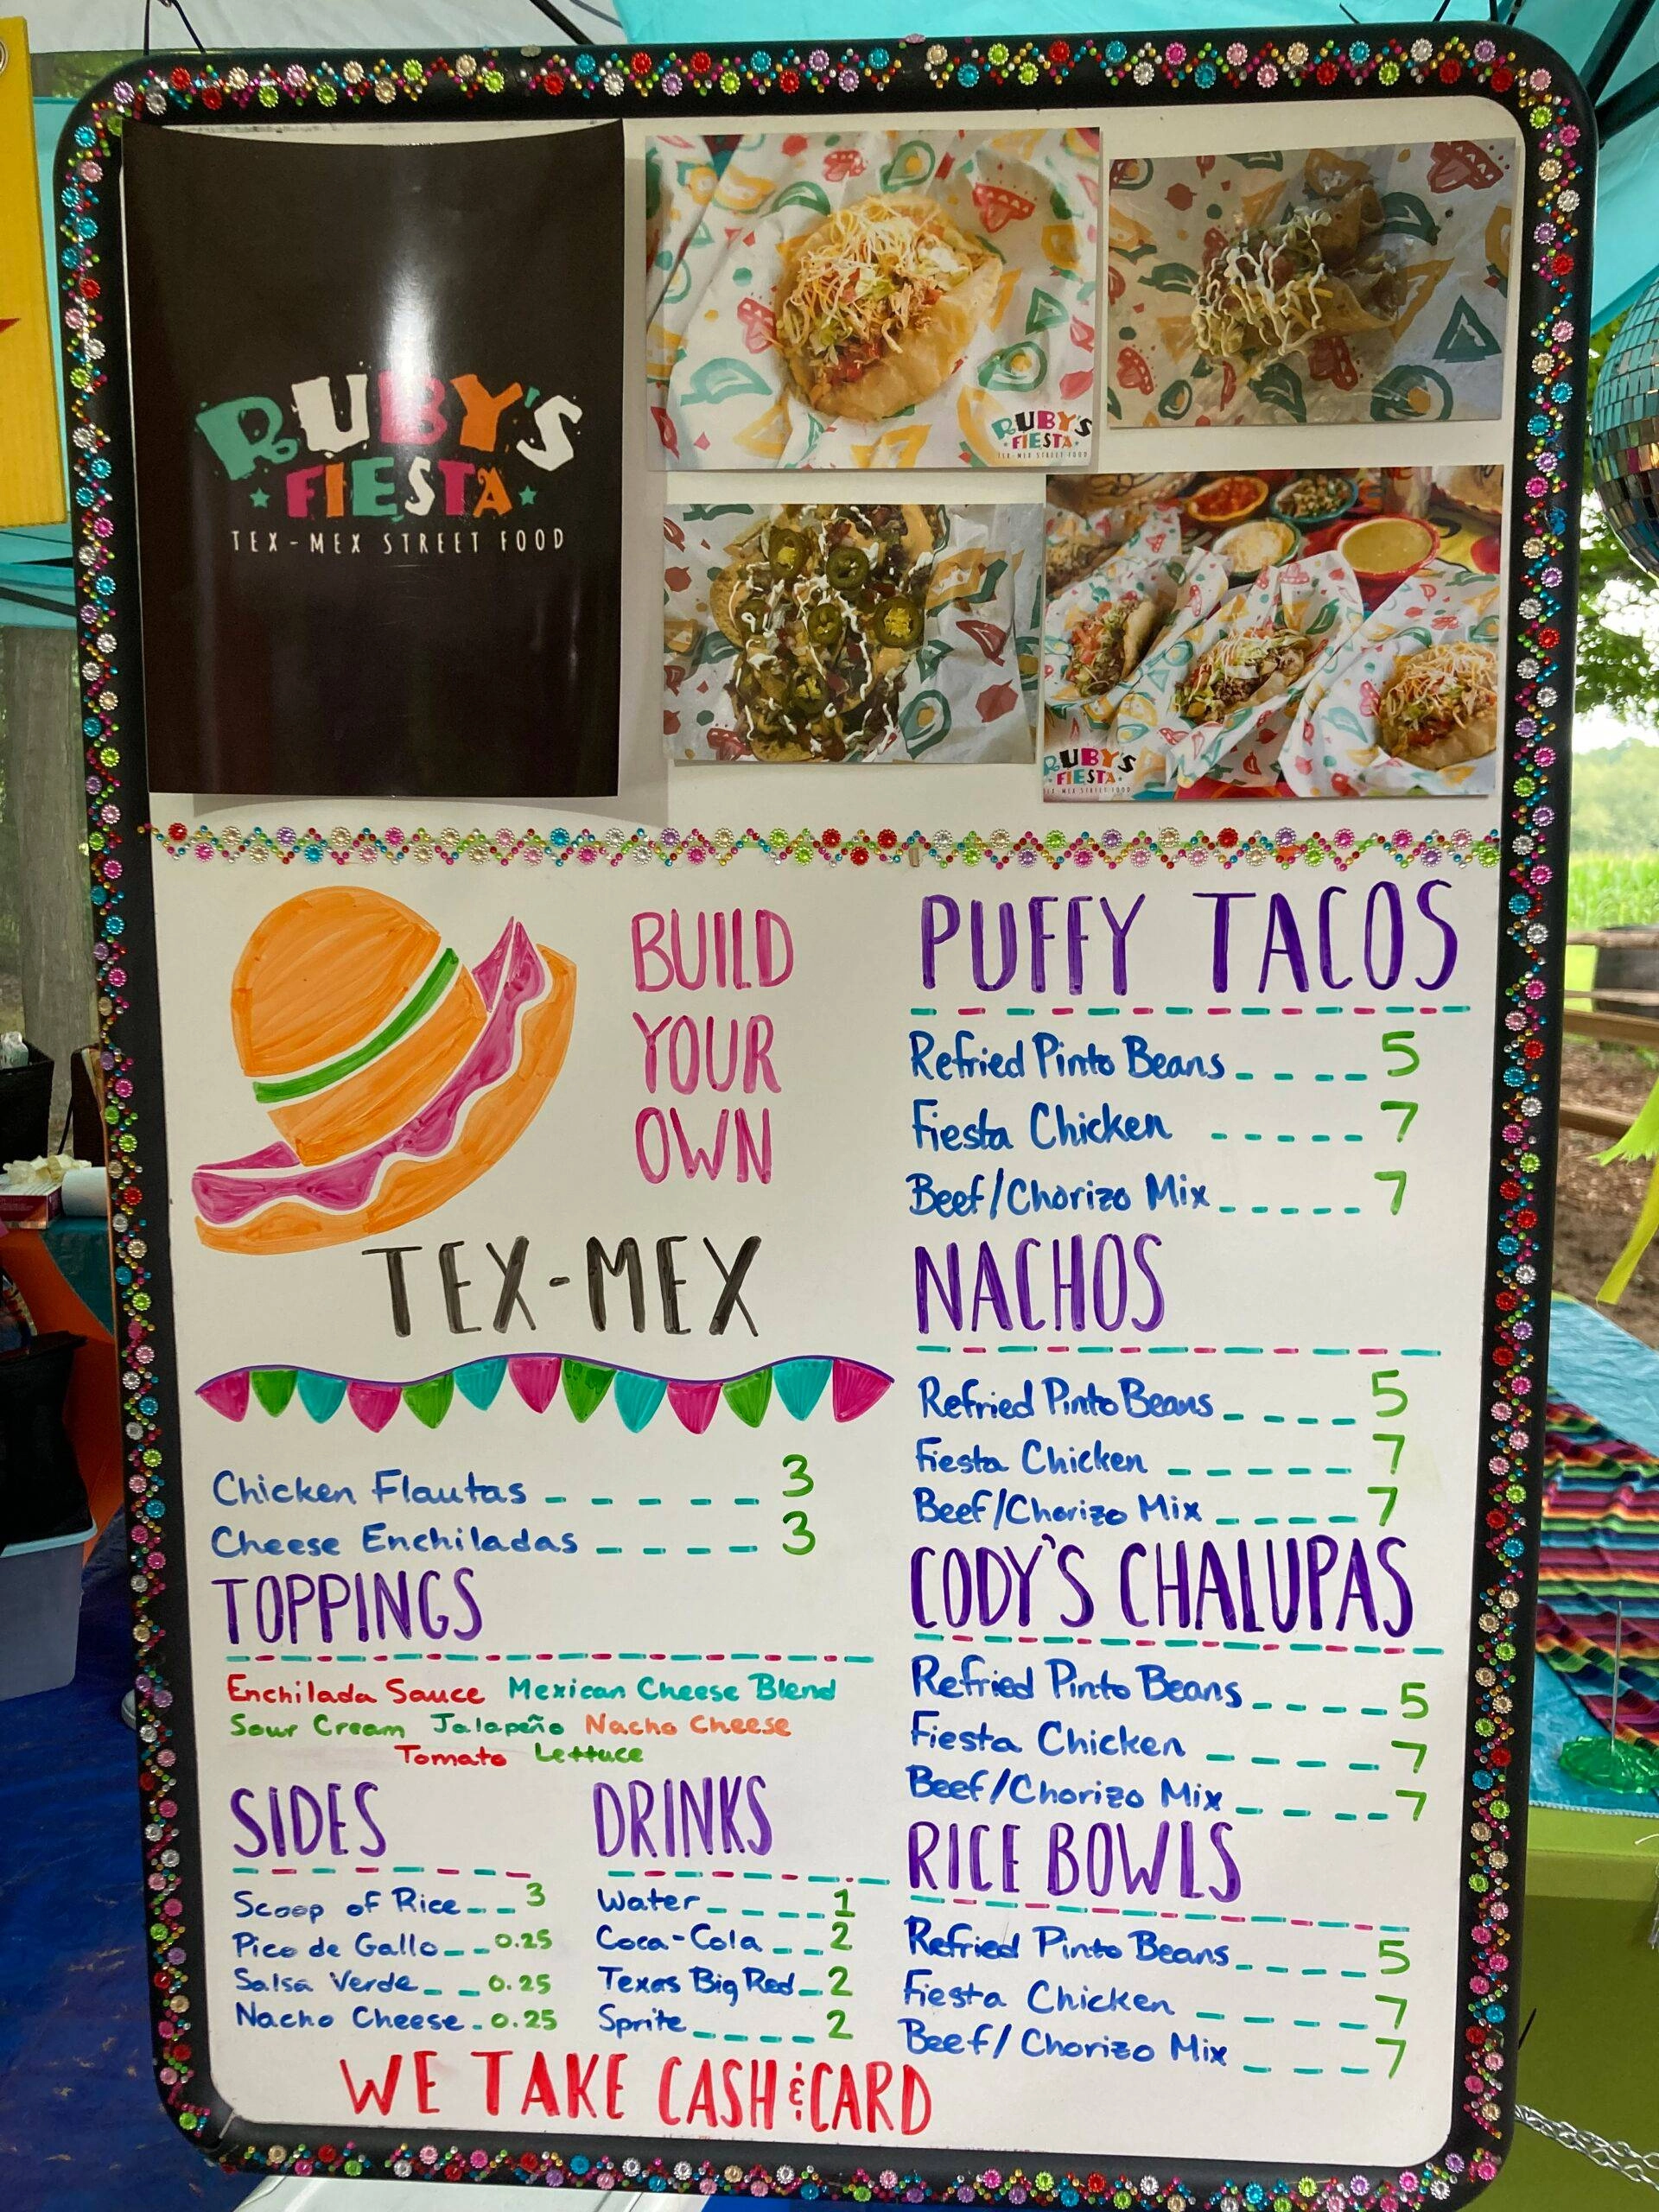 RUBY'S
FIESTA
TEX-MEX STREET FOOD
RUBY'S
FIESTA
TEX-MEX STREET FOOD
RUBY'S
FIESTA
TEX-MEX STREET FOOD
BUILD
YOUR
OWN
TEX-MEX
Chicken Flautas 3
Cheese Enchiladas 3
TOPPINGS
Enchilada Sauce Mexican Cheese Blend
Sour Cream Jalapeño Nacho Cheese
Tomato Lettuce
SIDES
Scoop of Rice 3
Pico de Gallo 0.25
Salsa Verde 0.25
Nacho Cheese 0.25
DRINKS
Water 1
Coca-Cola 2
Texas Big Red 2
Sprite 2
PUFFY TACOS
Refried Pinto Beans 5
Fiesta Chicken 7
Beef/Chorizo Mix 7
NACHOS
Refried Pinto Beans 5
Fiesta Chicken 7
Beef/Chorizo Mix 7
CODY'S CHALUPAS
Refried Pinto Beans 5
Fiesta Chicken 7
Beef/Chorizo Mix 7
RICE BOWLS
Refried Pinto Beans 5
Fiesta Chicken 7
Beef/Chorizo Mix 7
WE TAKE CASH & CARD